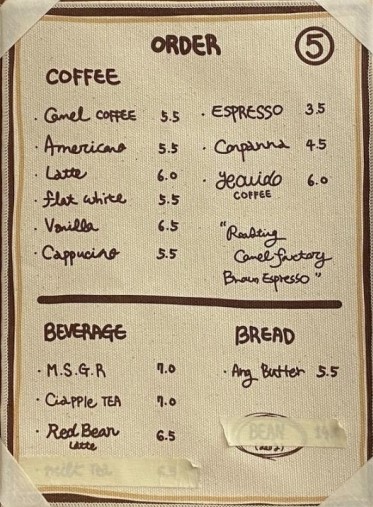 ORDER
5
COFFEE
· Camel COFFEE 5.5
· Americano 5.5
· Latte 6.0
· flat white 5.5
· Vanilla 6.5
· Cappucino 5.5
· ESPRESSO 3.5
· Conpanna 4.5
· COFFEE 6.0
"Roasting
Camel factory
Brown Espresso"
BEVERAGE
· M.S.G.R 7.0
· Ciapple TEA 7.0
· Red Bean 6.5
Latte
· Milk TEA
BREAD
· Ang Butter 5.5
BEAN